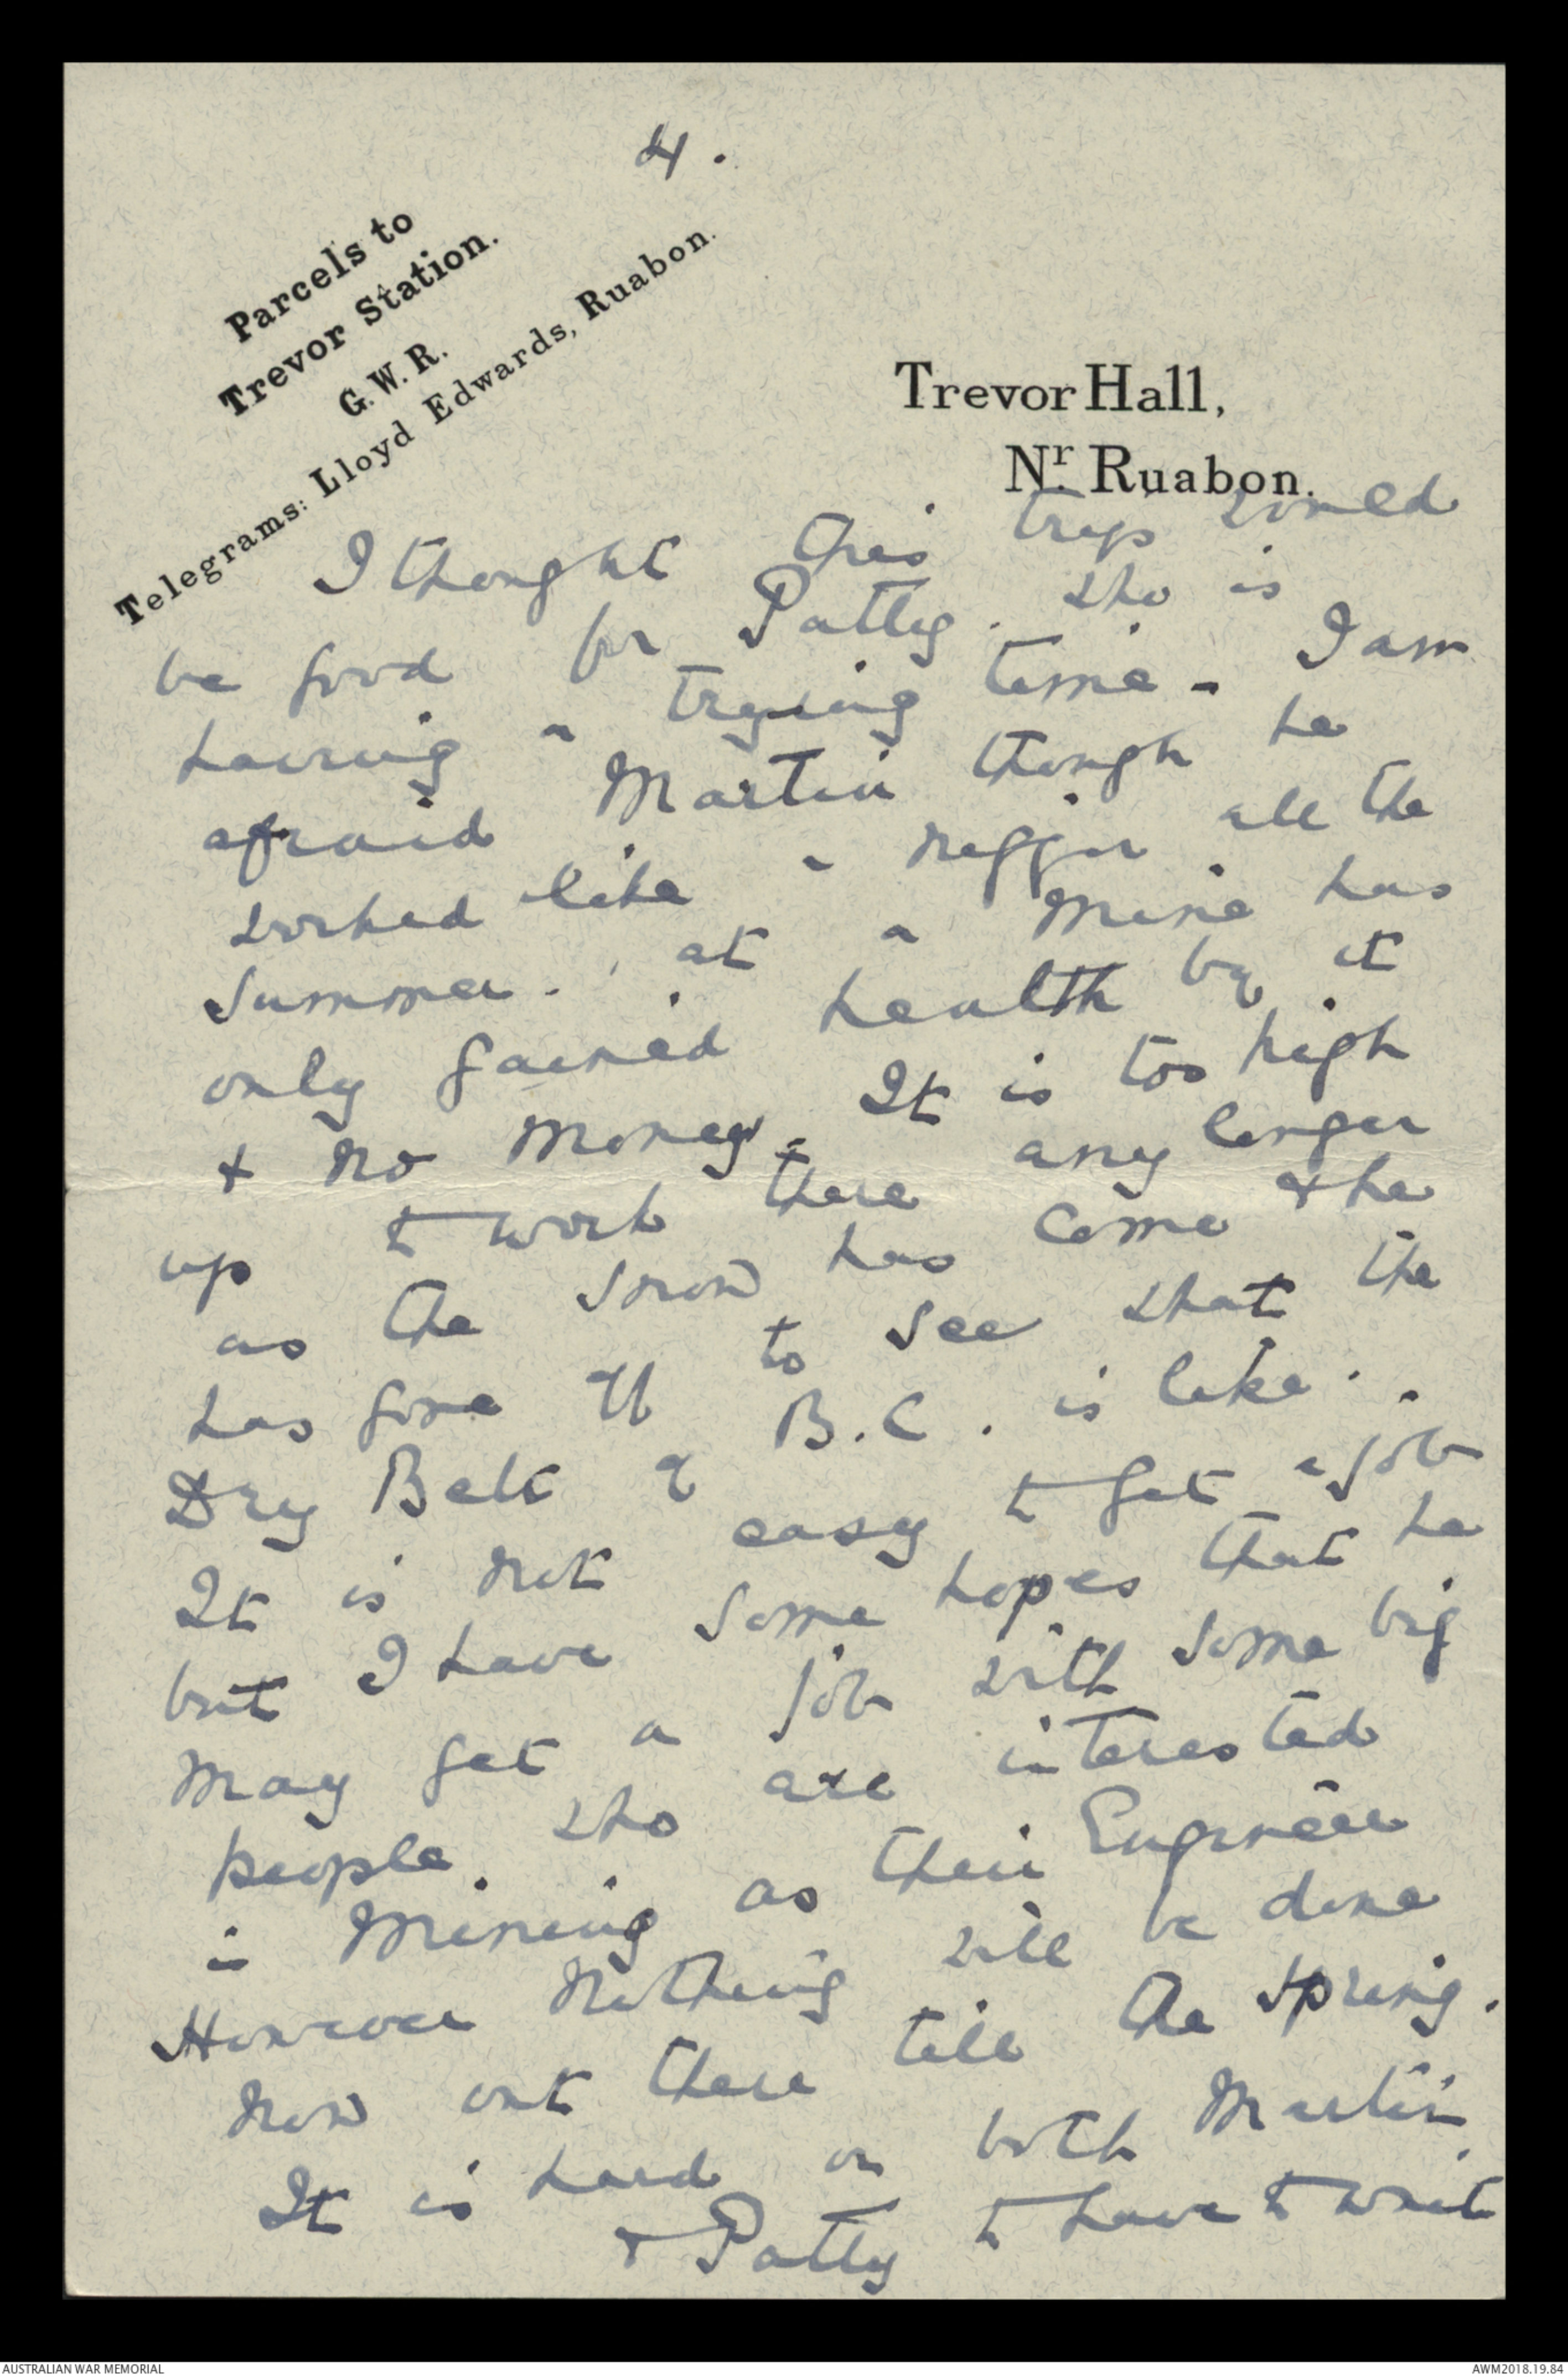 4.
Parcels to
Trevor Station.
G.W.R.
Telegrams: Lloyd Edwards, Ruabon.
Trevor Hall,
Nr. Ruabon.
I thought this trip would
be good for Patty. who is
having a trying time - I am
afraid Martin though he
worked like a nigger all the
summer. at a Mine has
only gained health by it
& no Money. It is too high
up to work there any longer
as the snow has come & he
has gone off to see what the
Dry Belt of B.C. is like.
It is not easy to get a job
but I have some hopes that he
may get a job with some big
people. who are interested
in Mining as their Engineer
However nothing will be done
now out there till the spring.
It is hard on both Martin
& Patty to have to wait
AUSTRALIAN WAR MEMORIAL
AWM2018.19.84